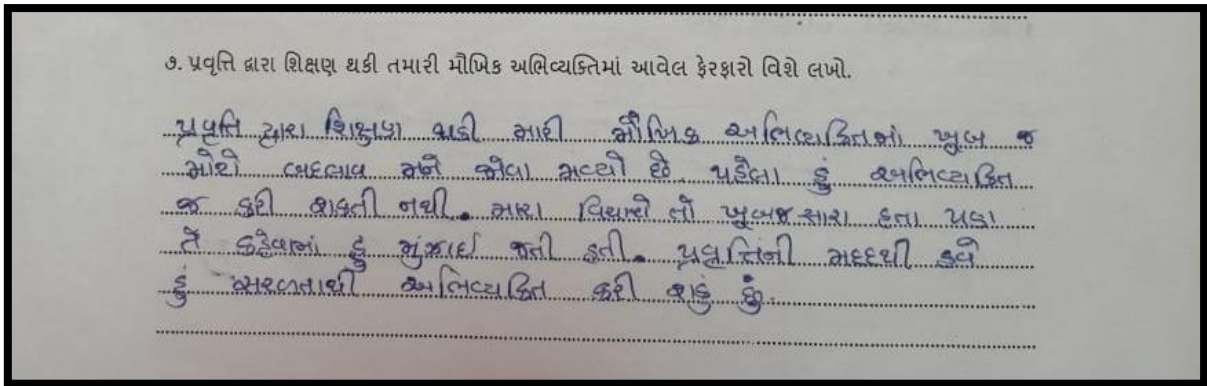 ૭. પ્રવૃત્તિ દ્વારા શિક્ષણ થકી તમારી મૌખિક અભિવ્યક્તિમાં આવેલ ફેરફારો વિશે લખો.
પ્રવૃતિ દ્વારા શિક્ષણ થકી મારી મૌખિક અભિવ્યકિતમાં ખુબ જ
મોટો બદલાવ મને જોવા મળ્યો છે. પહેલા હું અભિવ્યકિત
જ કરી શકતી નથી. મારા વિચારો તો ખુબજ સારા હતા પણ
તે કહેવામાં હું મુંઝાઈ જતી હતી. પ્રવૃત્તિની મદદથી હવે
હું સરળતાથી અભિવ્યકિત કરી શકું છું.